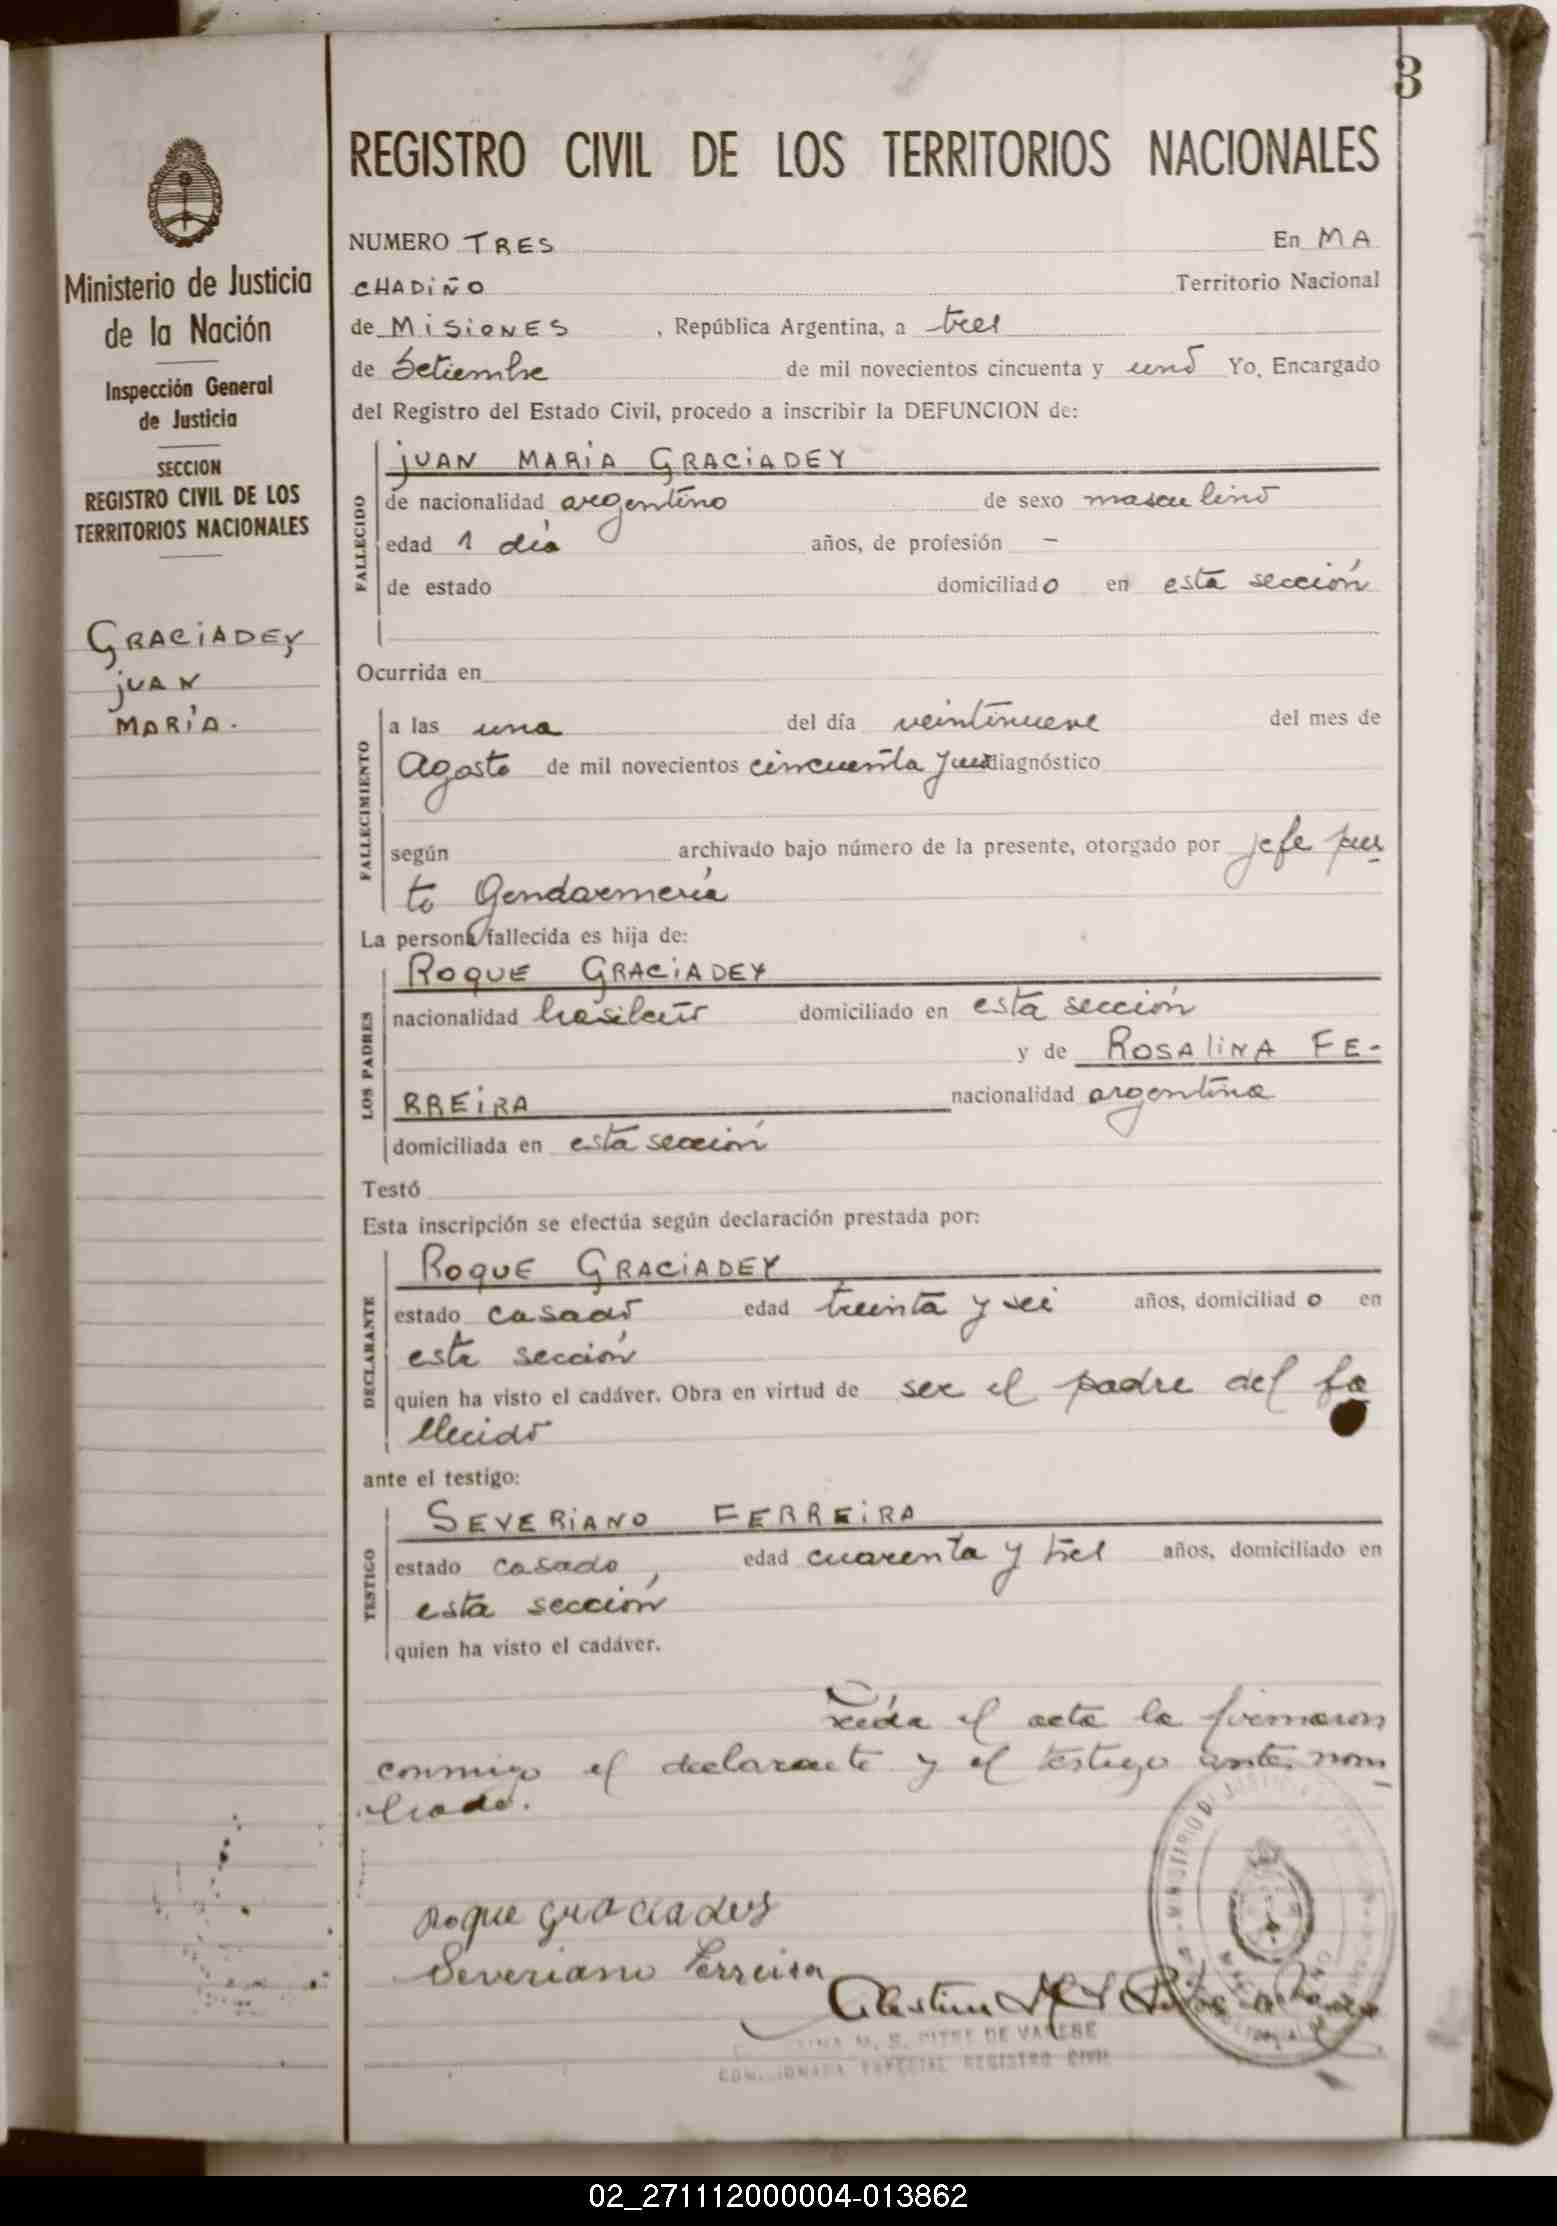 3
REGISTRO CIVIL DE LOS TERRITORIOS NACIONALES
Ministerio de Justicia
de la Nación
Inspección General
de Justicia
SECCION
REGISTRO CIVIL DE LOS
TERRITORIOS NACIONALES
GRACIADEY
JUAN
MARÍA.
NUMERO TRES En MA
CHADIÑO Territorio Nacional
de MISIONES , República Argentina, a tres
de Setiembre de mil novecientos cincuenta y uno Yo, Encargado
del Registro del Estado Civil, procedo a inscribir la DEFUNCION de:
FALLECIDO
JUAN MARIA GRACIADEY
de nacionalidad argentino de sexo masculino
edad 1 día años, de profesión –
de estado domiciliado en esta sección
Ocurrida en
FALLECIMIENTO
a las una del día veintinueve del mes de
Agosto de mil novecientos cincuenta y uno diagnóstico
según archivado bajo número de la presente, otorgado por jefe pues
to Gendarmería
La persona fallecida es hija de:
LOS PADRES
ROQUE GRACIADEY
nacionalidad brasileño domiciliado en esta sección
y de ROSALINA FE-
RREIRA nacionalidad argentina
domiciliada en esta sección
Testó
Esta inscripción se efectúa según declaración prestada por:
DECLARANTE
ROQUE GRACIADEY
estado casado edad treinta y seis años, domiciliado en
esta sección
quien ha visto el cadáver. Obra en virtud de ser el padre del fa
llecido
ante el testigo:
TESTIGO
SEVERIANO FERREIRA
estado casado, edad cuarenta y tres años, domiciliado en
esta sección
quien ha visto el cadáver.
Leída el acta la firmaron
conmigo el declarante y el testigo ante nom
brado.
Roque graciadey
Severiano Ferreira
M. S. PITRE DE VARESE
COMISIONADA ESPECIAL REGISTRO CIVIL
02_271112000004-013862